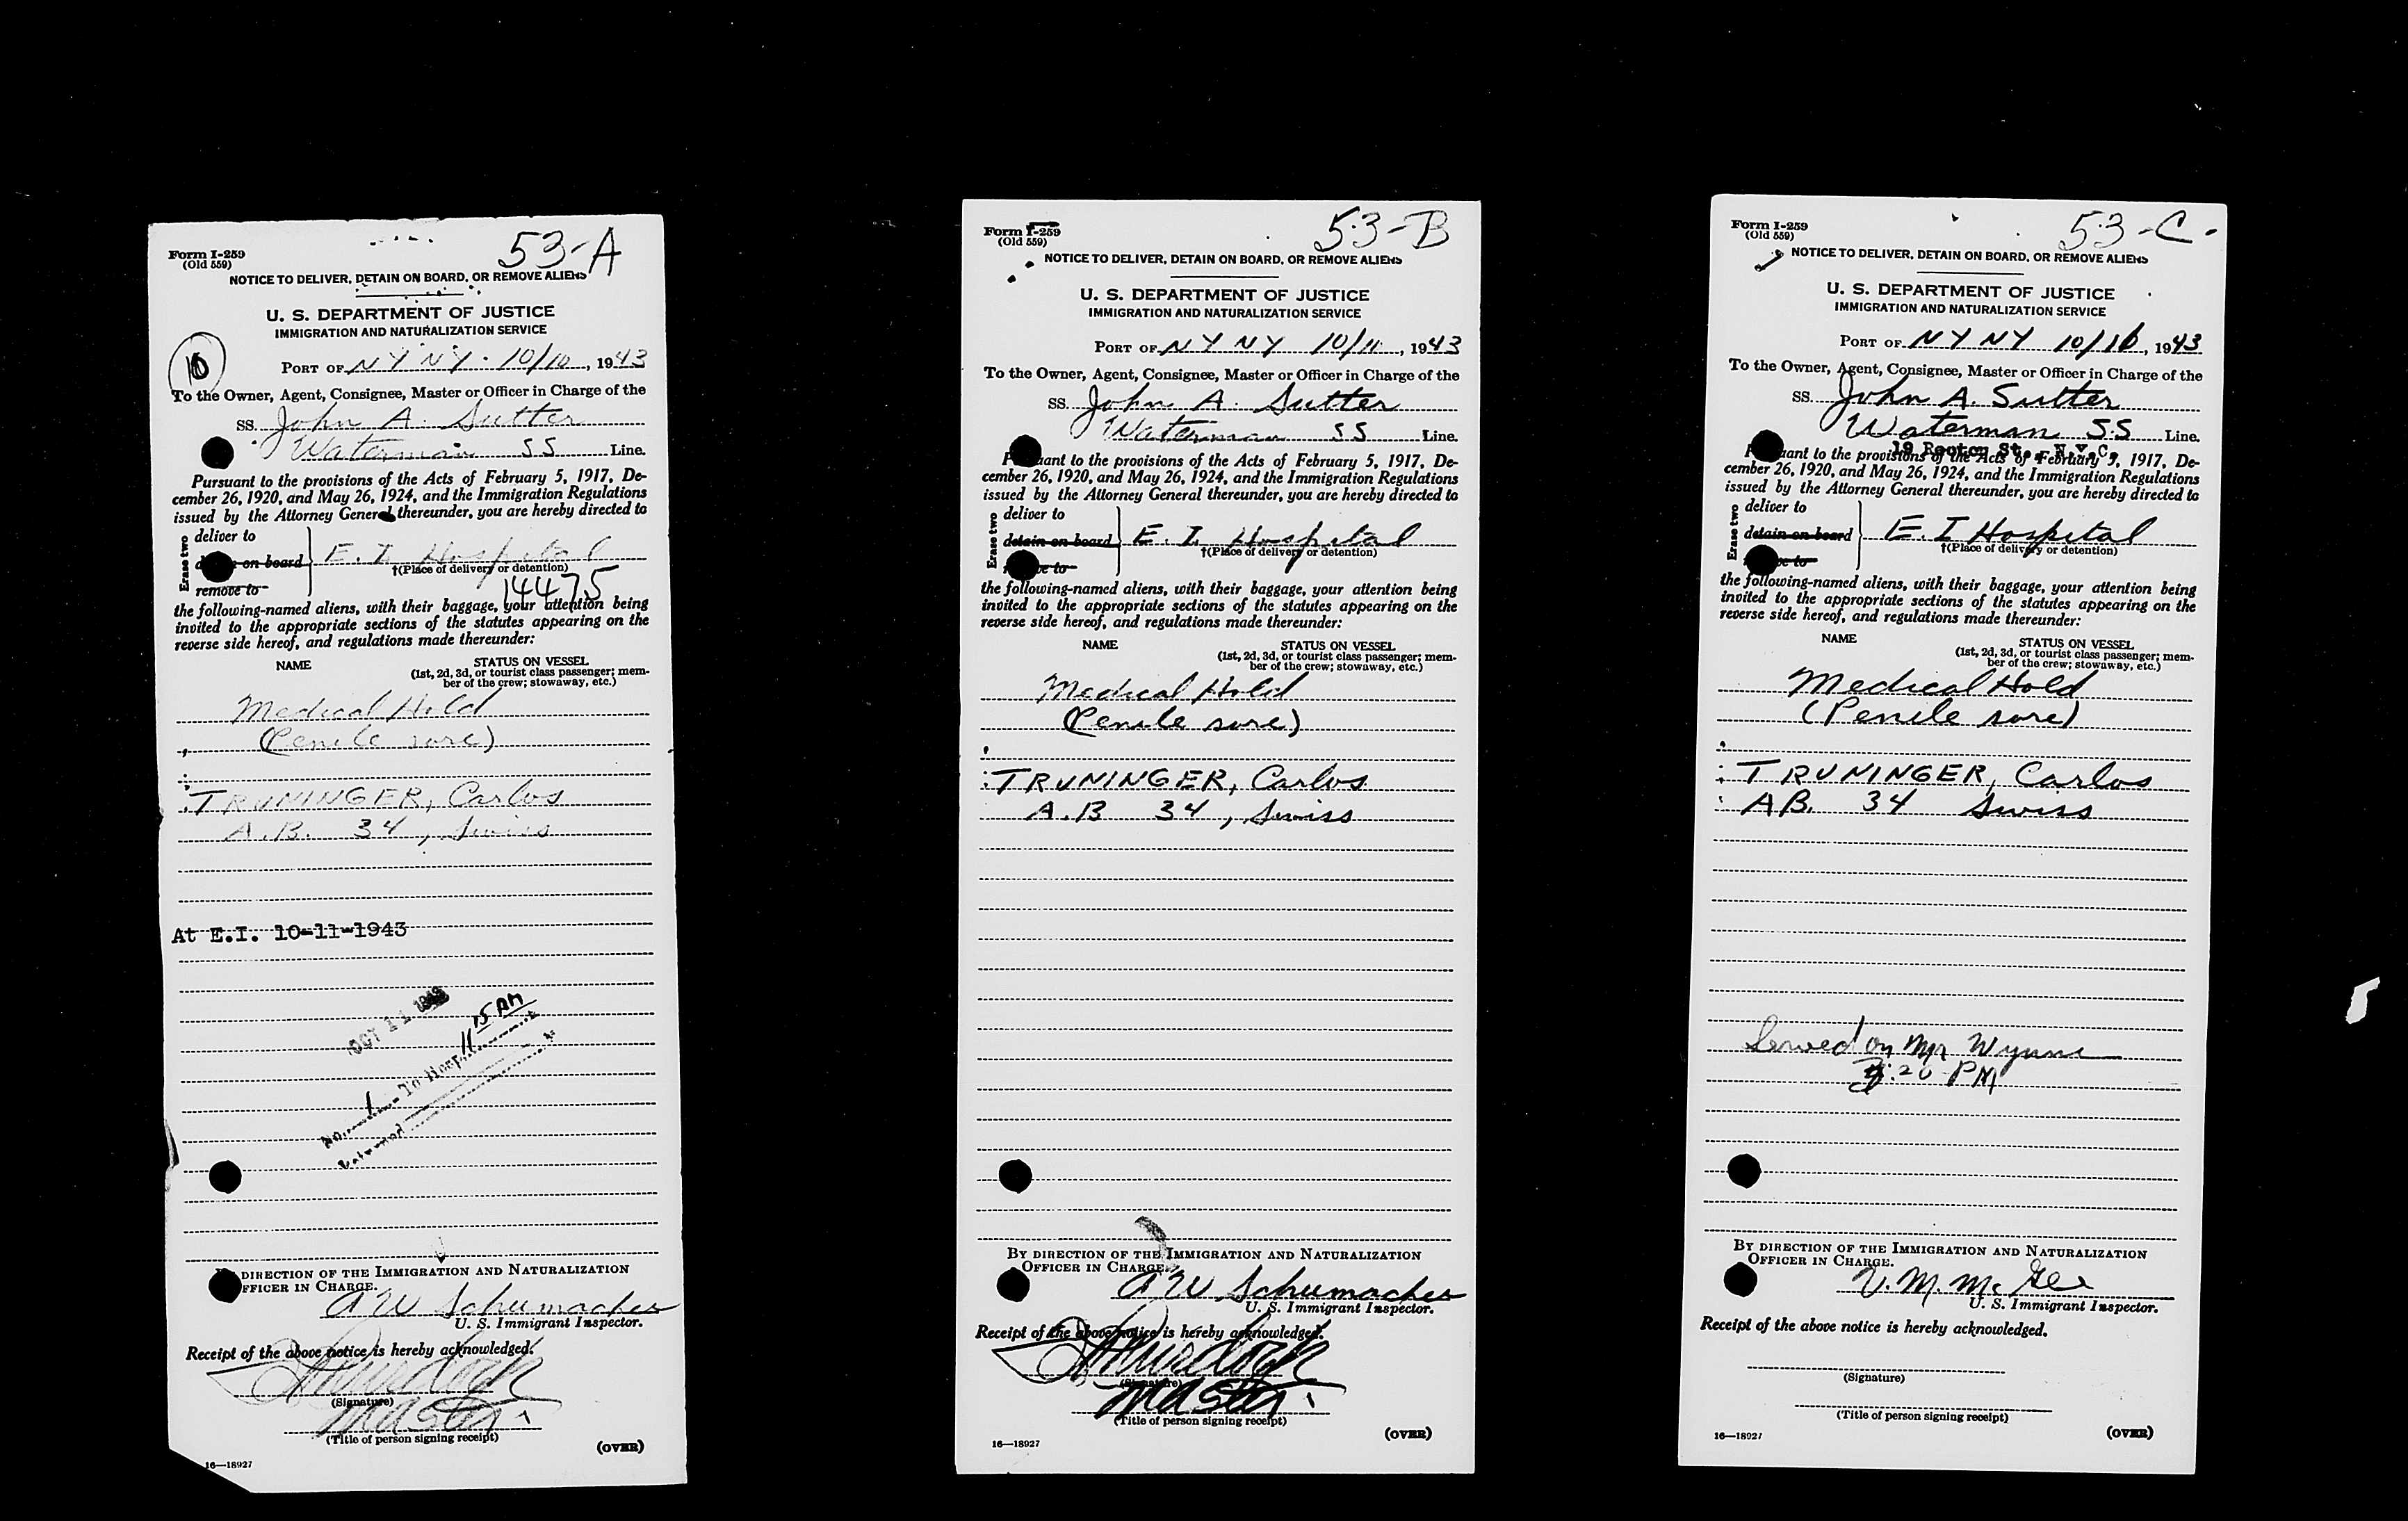 Form I-259
(Old 559)
53-A
NOTICE TO DELIVER, DETAIN ON BOARD, OR REMOVE ALIENS
U. S. DEPARTMENT OF JUSTICE
IMMIGRATION AND NATURALIZATION SERVICE
10
PORT OF NY NY. 10/10, 1943
To the Owner, Agent, Consignee, Master or Officer in Charge of the
SS. John A. Sutter
Waterman SS Line.
Pursuant to the provisions of the Acts of February 5, 1917, De-
cember 26, 1920, and May 26, 1924, and the Immigration Regulations
issued by the Attorney General thereunder, you are hereby directed to
Erase two
deliver to
on board
remove to
E. I. Hospital
†(Place of delivery or detention)
14475
the following-named aliens, with their baggage, your attention being
invited to the appropriate sections of the statutes appearing on the
reverse side hereof, and regulations made thereunder:
NAME
STATUS ON VESSEL
(1st, 2d, 3d, or tourist class passenger; mem-
ber of the crew; stowaway, etc.)
Medical Hold
(Penile sore)
TRUNINGER, Carlos
A.B. 34, Swiss
At E.I. 10-11-1943
OCT 11 1943
No. 1 To Hosp. 11 15 AM
Returned
DIRECTION OF THE IMMIGRATION AND NATURALIZATION
OFFICER IN CHARGE.
A W Schumacher
U. S. Immigrant Inspector.
Receipt of the above notice is hereby acknowledged.
(Signature)
Master
(Title of person signing receipt)
16—18927
(OVER)
Form I-259
(Old 559)
53-B
NOTICE TO DELIVER, DETAIN ON BOARD, OR REMOVE ALIENS
U. S. DEPARTMENT OF JUSTICE
IMMIGRATION AND NATURALIZATION SERVICE
PORT OF NY NY 10/11, 1943
To the Owner, Agent, Consignee, Master or Officer in Charge of the
SS. John A. Sutter
Waterman SS Line.
Pursuant to the provisions of the Acts of February 5, 1917, De-
cember 26, 1920, and May 26, 1924, and the Immigration Regulations
issued by the Attorney General thereunder, you are hereby directed to
Erase two
deliver to
detain on board
to
E. I. Hospital
†(Place of delivery or detention)
the following-named aliens, with their baggage, your attention being
invited to the appropriate sections of the statutes appearing on the
reverse side hereof, and regulations made thereunder:
NAME
STATUS ON VESSEL
(1st, 2d, 3d, or tourist class passenger; mem-
ber of the crew; stowaway, etc.)
Medical Hold
(Penile sore)
TRUNINGER, Carlos
A.B 34, Swiss
BY DIRECTION OF THE IMMIGRATION AND NATURALIZATION
OFFICER IN CHARGE.
A W Schumacher
U. S. Immigrant Inspector.
Receipt of the above notice is hereby acknowledged.
(Signature)
Master
(Title of person signing receipt)
16—18927
(OVER)
Form I-259
(Old 559)
53-C
NOTICE TO DELIVER, DETAIN ON BOARD, OR REMOVE ALIENS
U. S. DEPARTMENT OF JUSTICE
IMMIGRATION AND NATURALIZATION SERVICE
PORT OF NY NY 10/10, 1943
To the Owner, Agent, Consignee, Master or Officer in Charge of the
SS. John A. Sutter
Waterman S.S Line.
19 Rector St., N.Y.C.
Pursuant to the provisions of the Acts of February 5, 1917, De-
cember 26, 1920, and May 26, 1924, and the Immigration Regulations
issued by the Attorney General thereunder, you are hereby directed to
Erase two
deliver to
detain on board
to
E. I Hospital
†(Place of delivery or detention)
the following-named aliens, with their baggage, your attention being
invited to the appropriate sections of the statutes appearing on the
reverse side hereof, and regulations made thereunder:
NAME
STATUS ON VESSEL
(1st, 2d, 3d, or tourist class passenger; mem-
ber of the crew; stowaway, etc.)
Medical Hold
(Penile sore)
TRUNINGER, Carlos
AB. 34 Swiss
Served on Mr Wynne
20 PM
BY DIRECTION OF THE IMMIGRATION AND NATURALIZATION
OFFICER IN CHARGE.
V. M. McGee
U. S. Immigrant Inspector.
Receipt of the above notice is hereby acknowledged.
(Signature)
(Title of person signing receipt)
16—18927
(OVER)